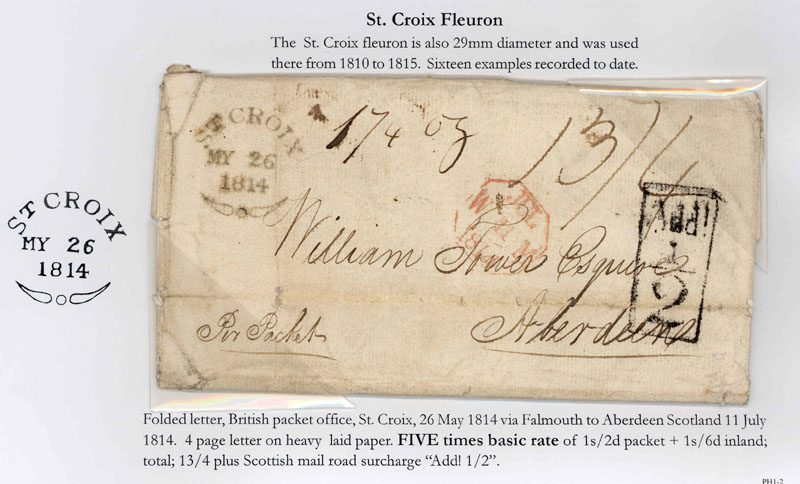 St. Croix Fleuron
The St. Croix fleuron is also 29mm diameter and was used
there from 1810 to 1815. Sixteen examples recorded to date.
ST CROIX
MY 26
1814
1 1/4 oz
13/4
ST CROIX
MY 26
1814
William Tower Esquire
Aberdeen
Per Packet
Folded letter, British packet office, St. Croix, 26 May 1814 via Falmouth to Aberdeen Scotland 11 July
1814. 4 page letter on heavy laid paper. FIVE times basic rate of 1s/2d packet + 1s/6d inland;
total; 13/4 plus Scottish mail road surcharge “Add! 1/2”.
PH1-2